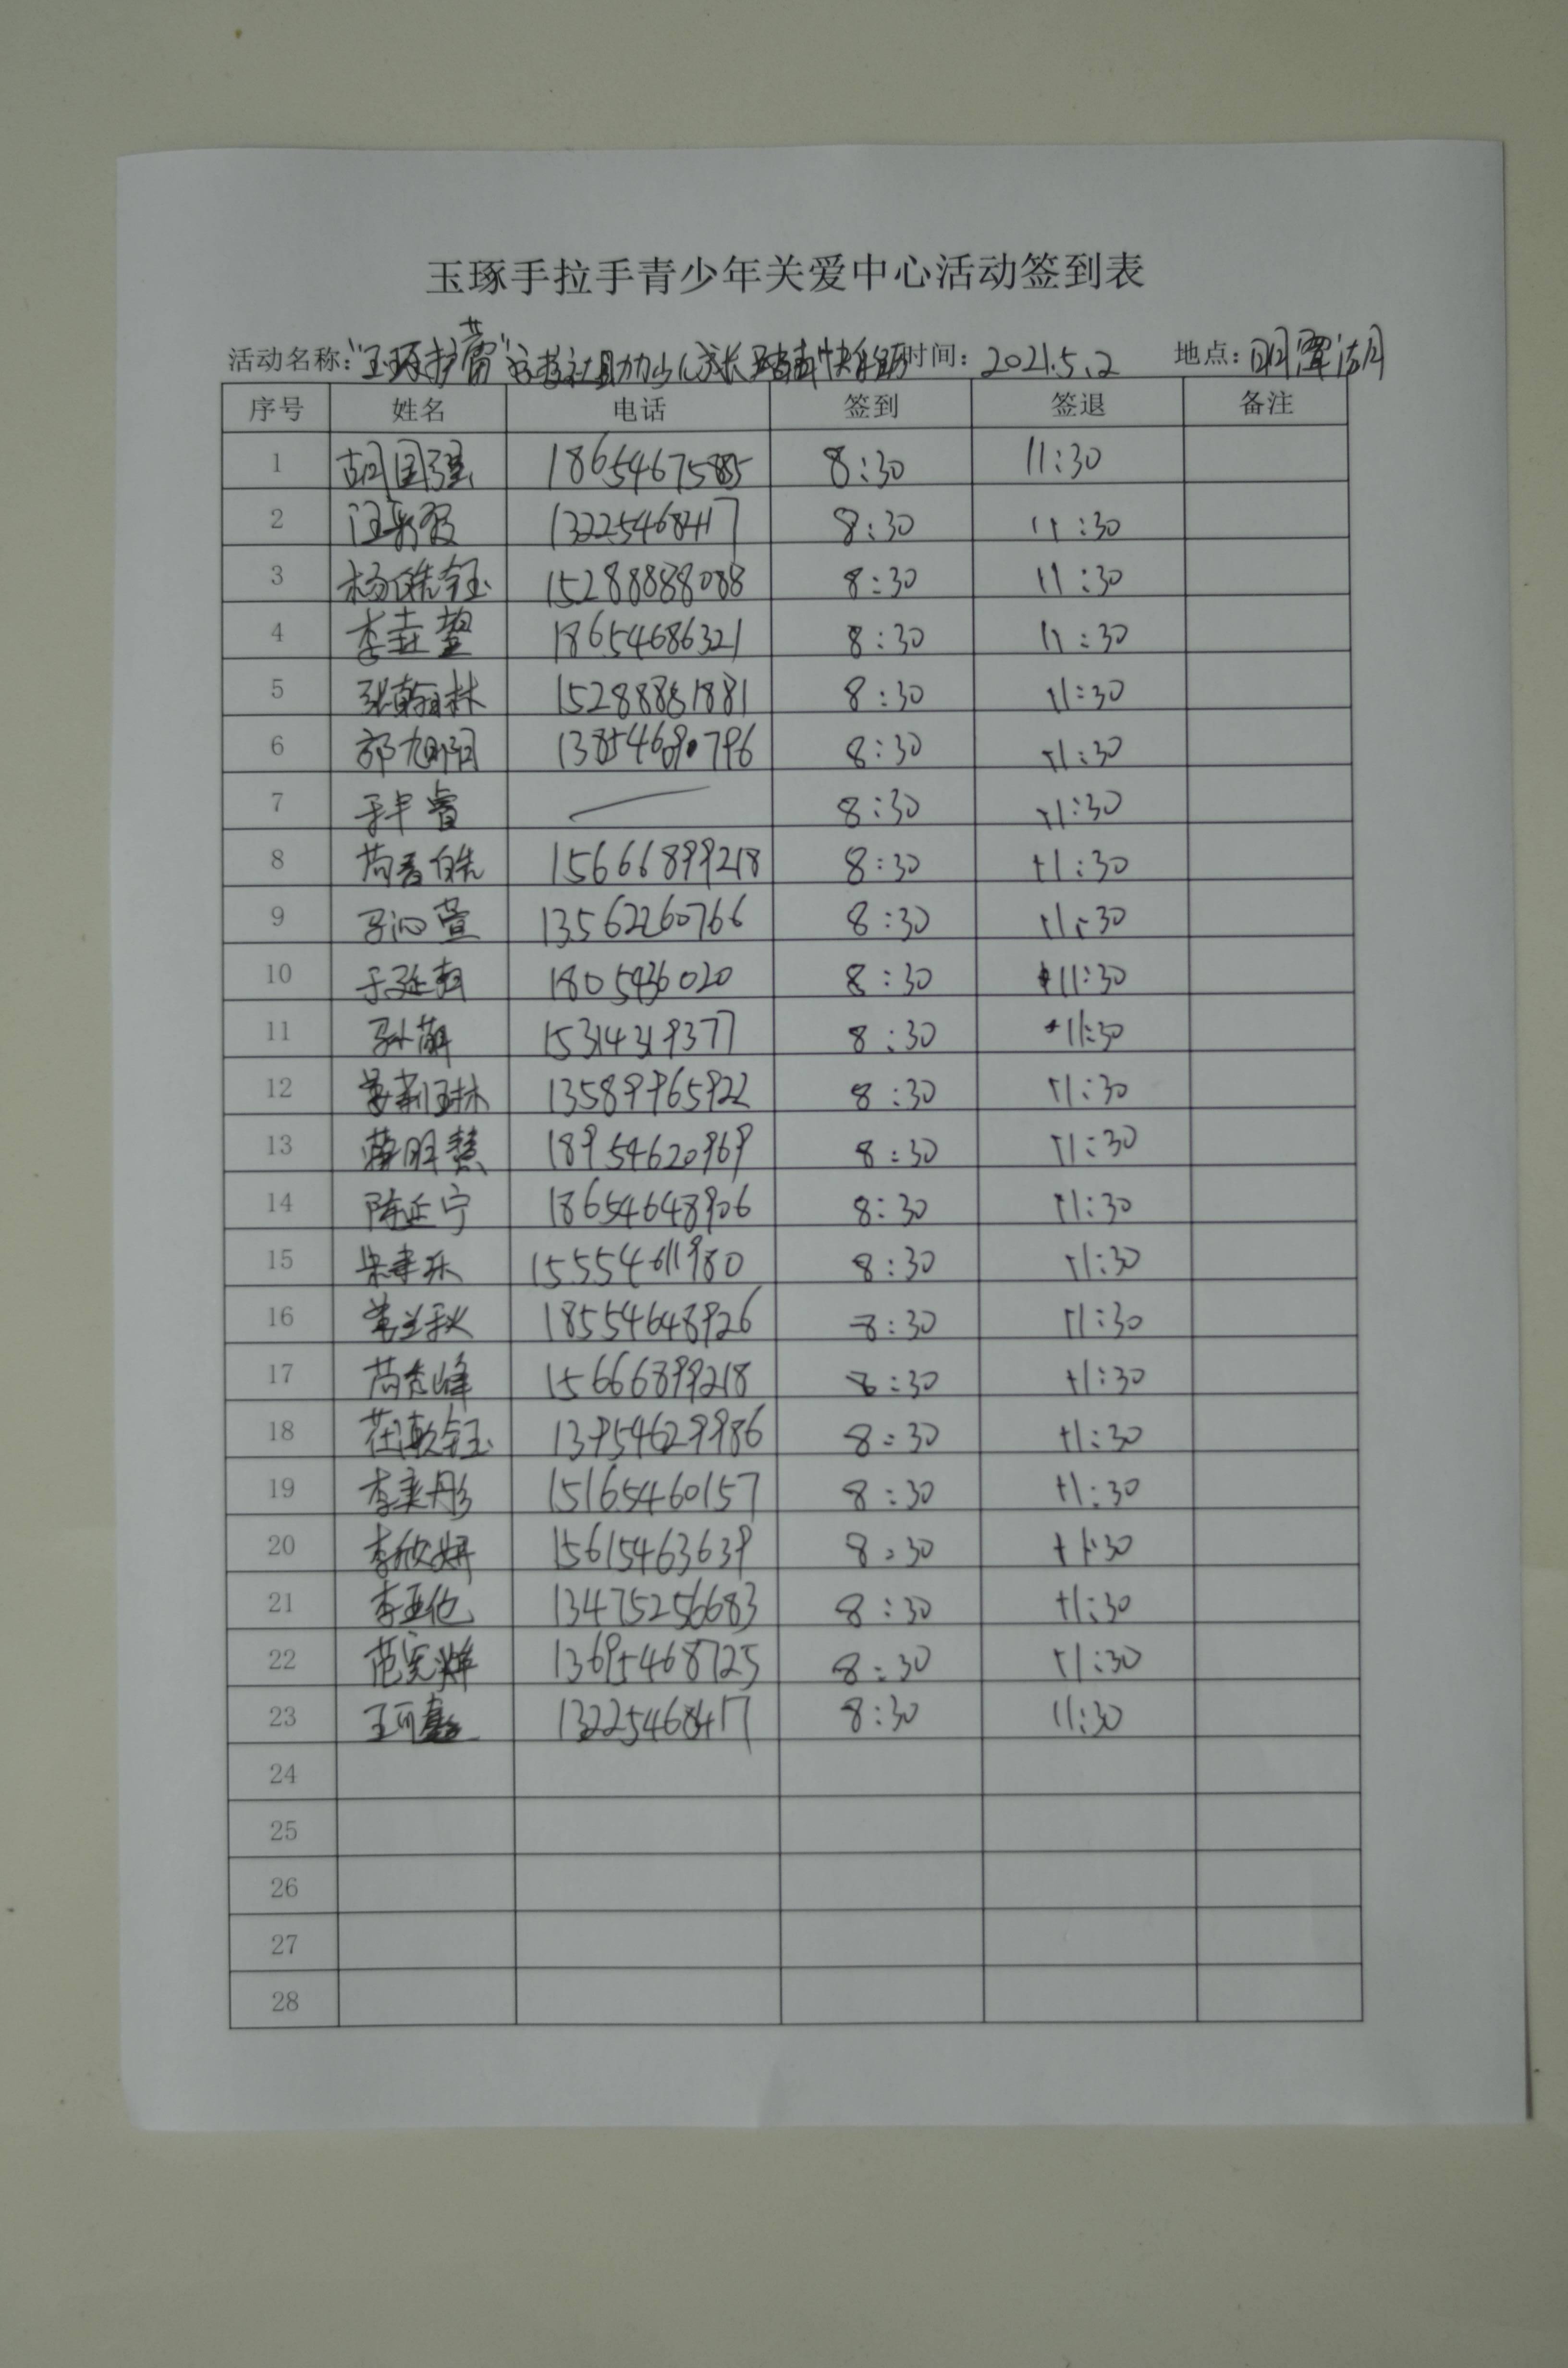 玉琢手拉手青少年关爱中心活动签到表
活动名称:"玉琢护蕾" 时间: 2021.5.2 地点: 明潭湖
序号 姓名 电话 签到 签退 备注
1 胡国强 18654675885 8:30 11:30
2 13225468417 8:30 11:30
3 杨皓钰 15288888088 8:30 11:30
4 李 18654686321 8:30 11:30
5 张翰林 15288881881 8:30 11:30
6 郭旭阳 13854690796 8:30 11:30
7 于丰睿 — 8:30 11:30
8 15666899218 8:30 11:30
9 马沁萱 13562260766 8:30 11:30
10 1805436020 8:30 11:30
11 孙萌 15314319377 8:30 11:30
12 13589965922 8:30 11:30
13 18954620969 8:30 11:30
14 陈延宁 18654648906 8:30 11:30
15 15554611980 8:30 11:30
16 18554648926 8:30 11:30
17 15666899218 8:30 11:30
18 13954629986 8:30 11:30
19 李奕彤 15165460157 8:30 11:30
20 李欣妍 15615463639 8:30 11:30
21 李亚伦 13475256683 8:30 11:30
22 范宪烨 13695468725 8:30 11:30
23 王可鑫 13225468417 8:30 11:30
24
25
26
27
28